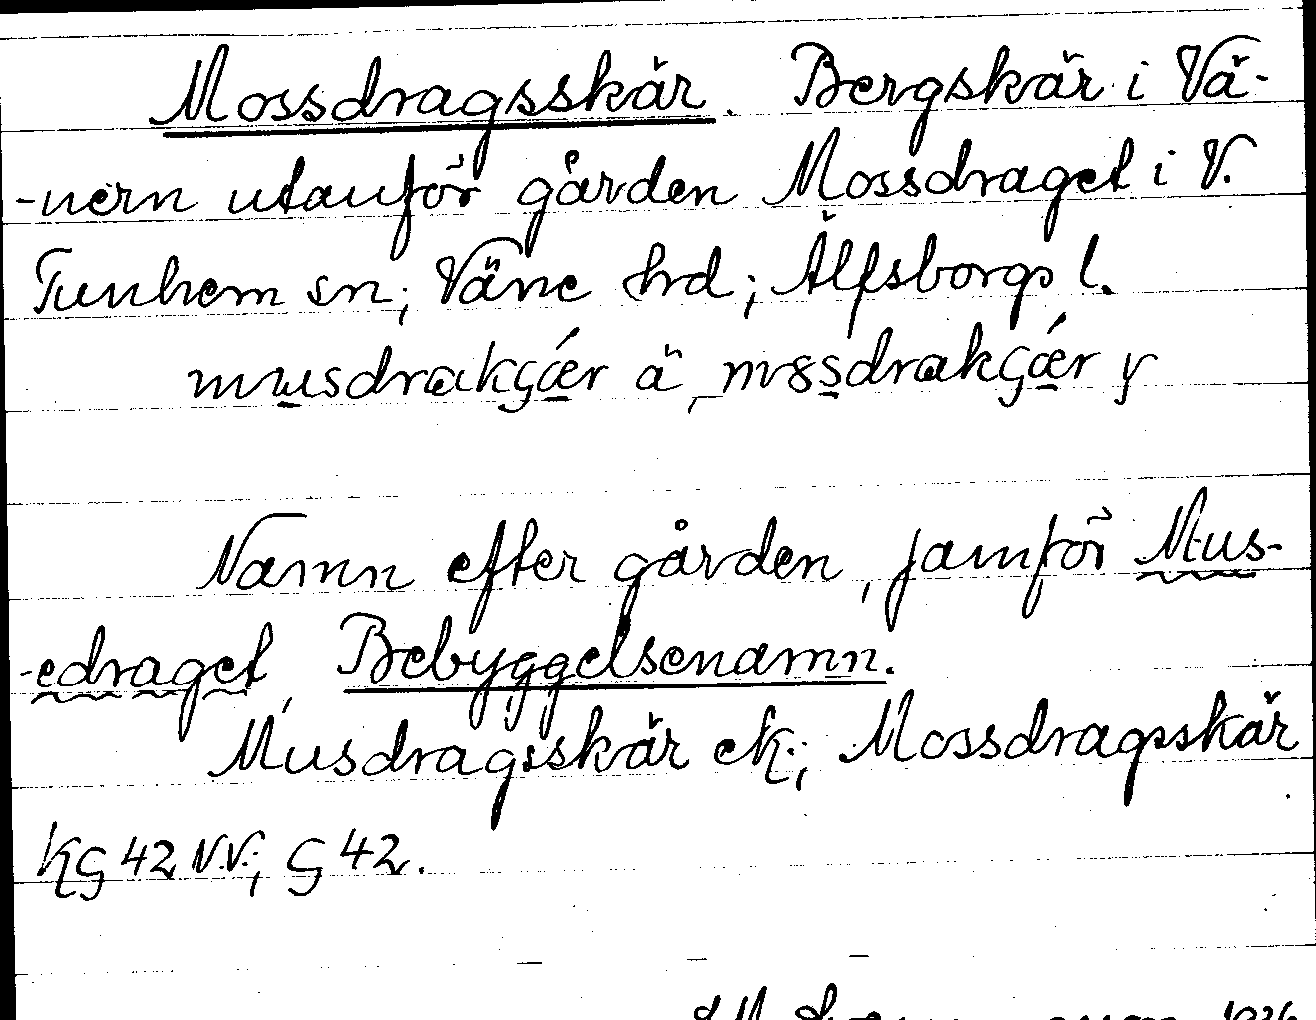 Mossdragsskär. Bergskär i Vä-
-nern utanför gården Mossdraget i V.
Tunhem sn; Väne hd; Älfsborgs l.
Namn efter gården, jamför Mus-
-edraget, Bebyggelsenamn.
Musdragsskär ek.; Mossdragsskär
KG 42 N.V.; G 42.
1936